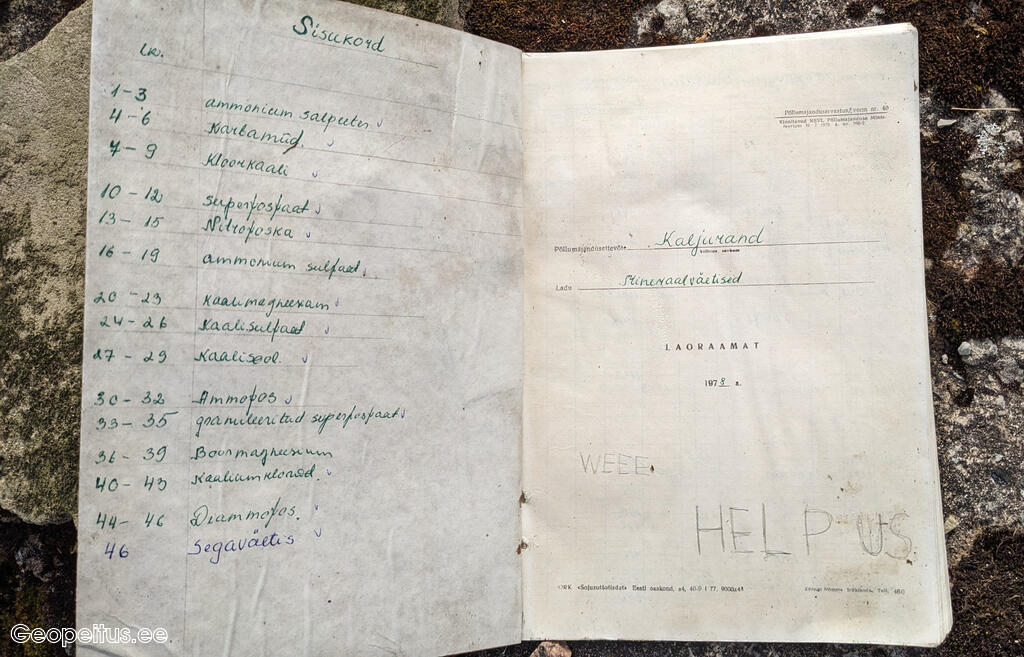 Sisukord
Lk.
1-3 ammonium salpeeter
4-6 Karbamiid.
7-9 Kloorkaali
10-12 superfosfaat
13-15 Nitrofoska
16-19 ammonium sulfaat
20-23 Kaalimagneesium
24-26 Kaalisulfaat
27-29 Kaalisool.
30-32 Ammofos
33-35 granuleeritud superfosfaat
36-39 Boormagneesium
40-43 Kaaliumkloriid.
44-46 Diammofos.
46 Segaväetis
Põllumajandusarvestus, vorm nr. 60
Kinnitatud NSVL Põllumajanduse Minis-
Põllumajandusettevõte Kaljurand
kolhoos, sovhoos
Ladu Mineraalväetised
LAORAAMAT
1978 a.
WEEE.
HELP US
ORK «Sojuzutšotizdat» Eesti osakond,
Geopeitus.ee